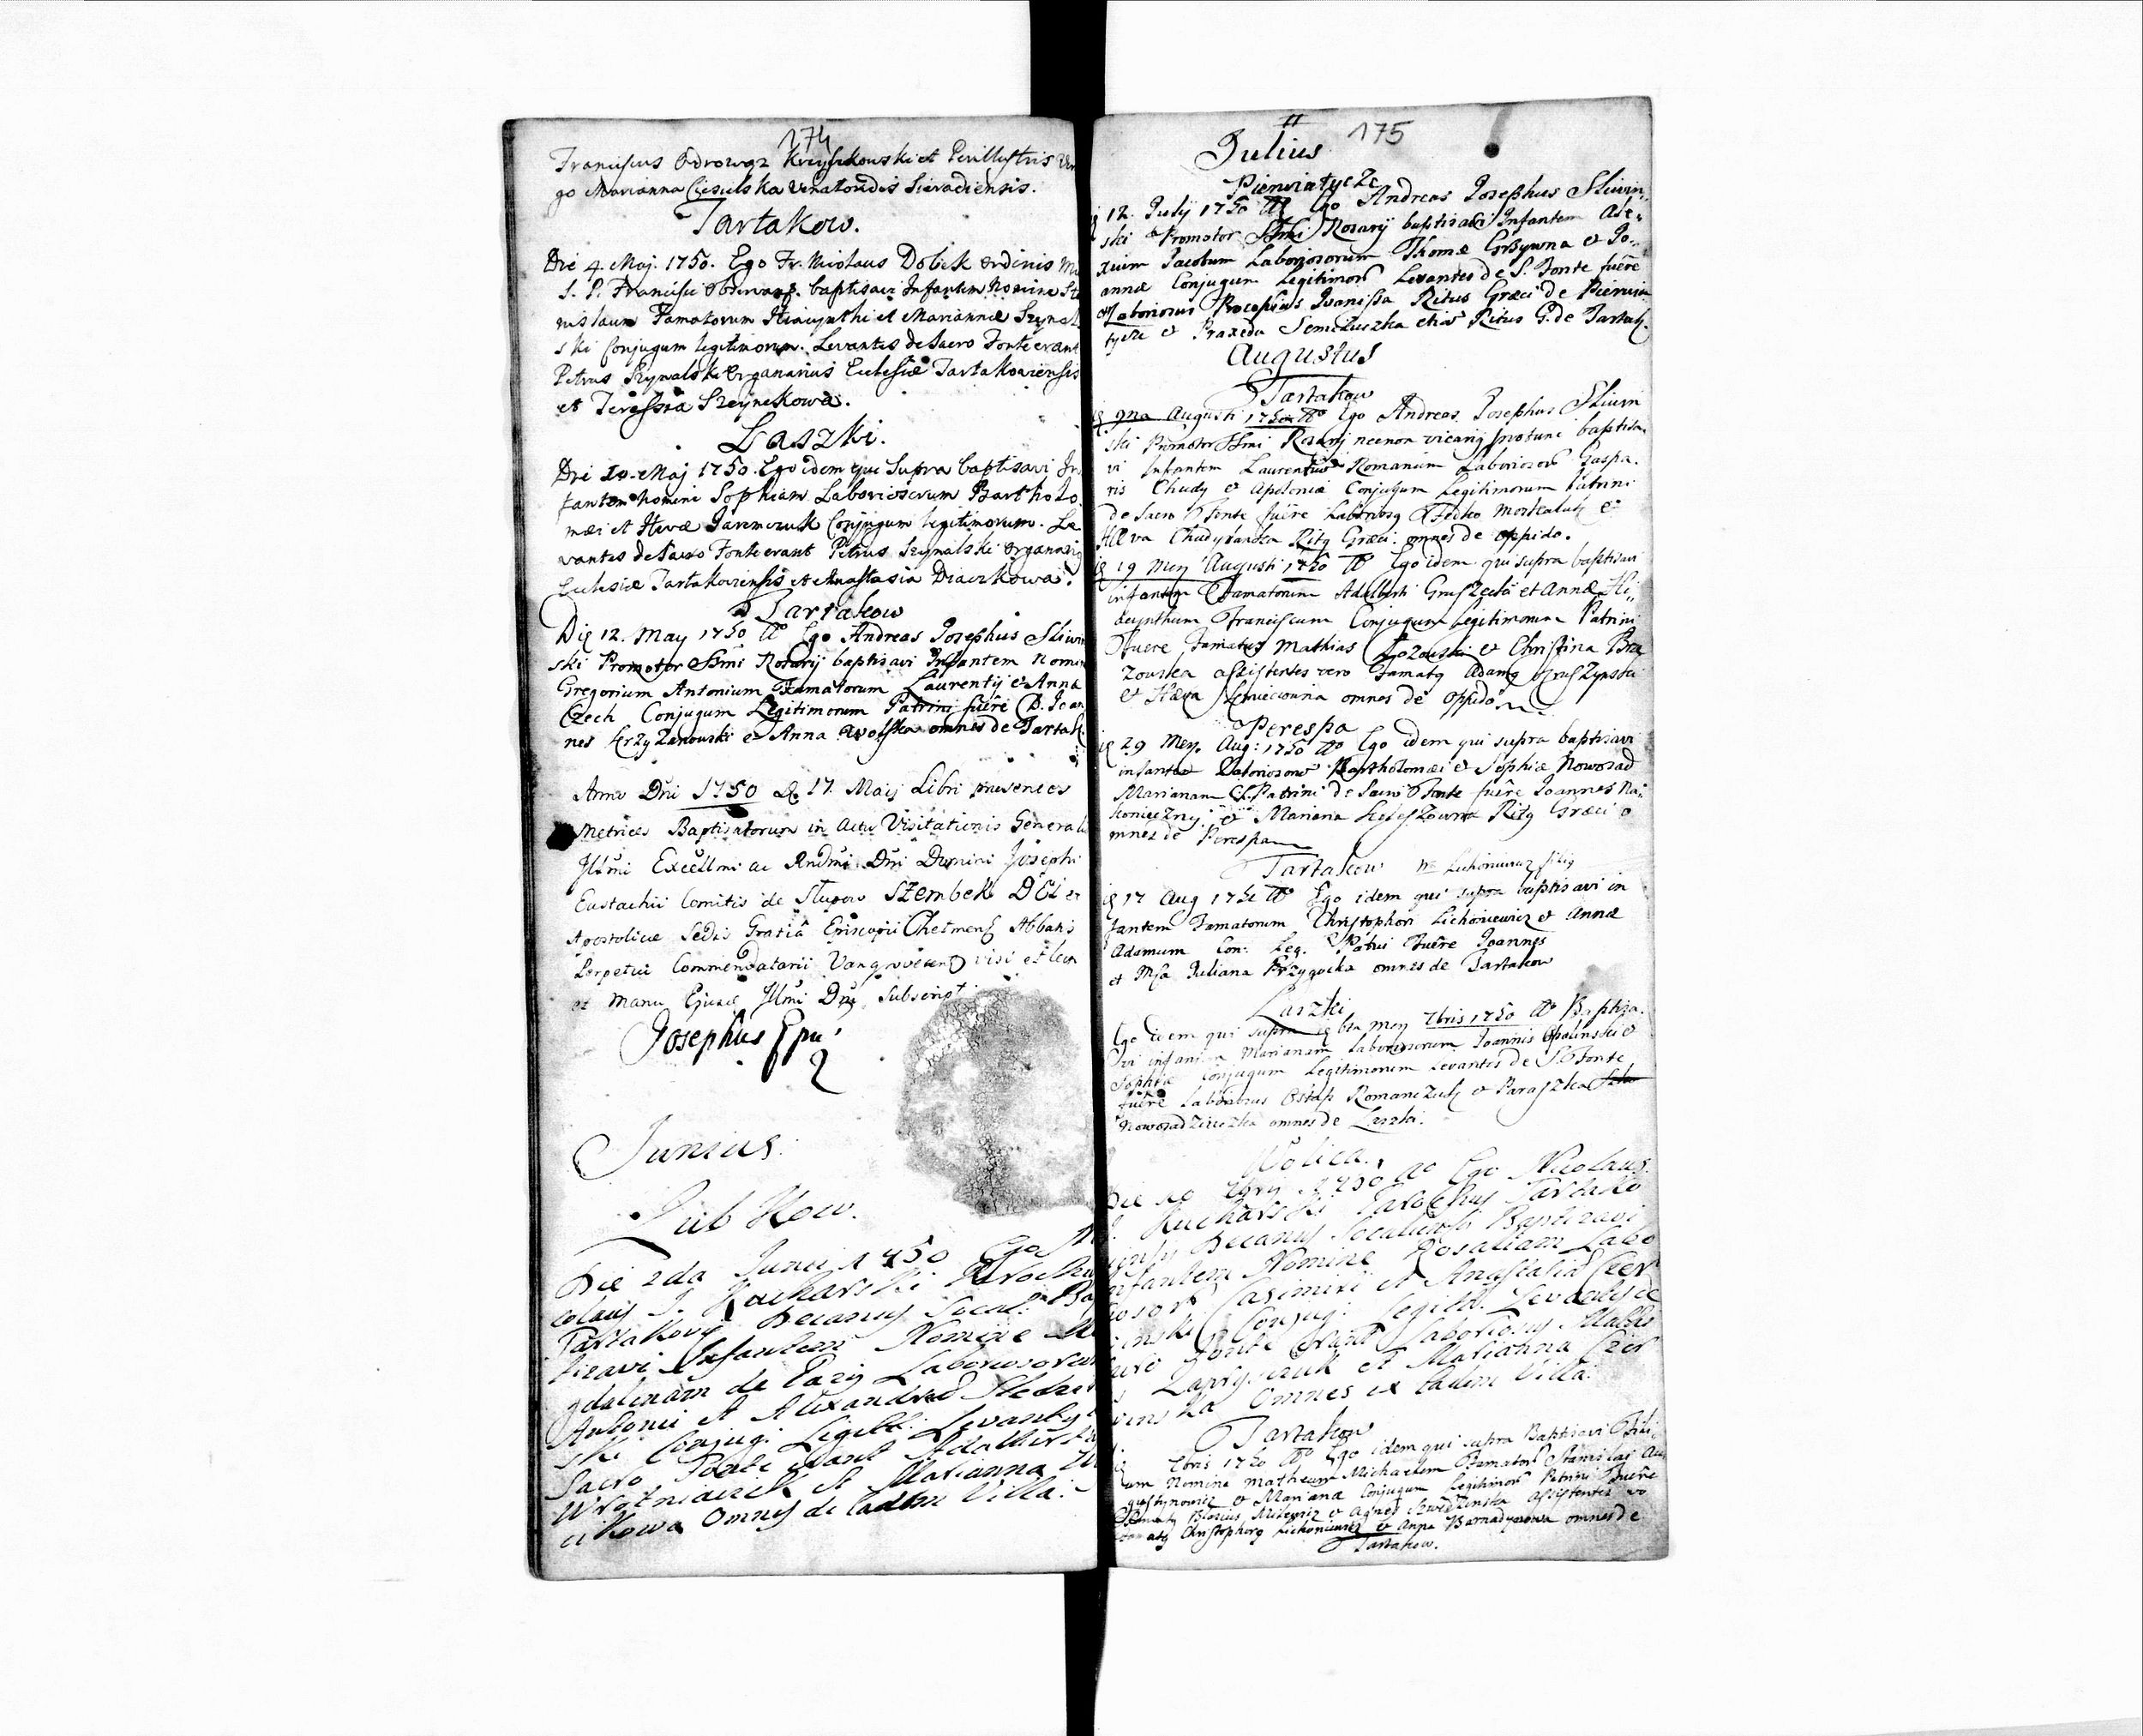 174
Franciscus Odrowąz Krzyszkowski et Perillustris Vir
go Marianna Ciesulska Venatoridis Sieradiensis.
Tartakow.
Die 4. Maj. 1750. Ego Fr. Nicolaus Dobek Ordinis Mi
S. P. Francisci Observan. baptisavi Infantem Nomine Sta
nislaum Famatorum Hiacynthi et Mariannæ Szynal
ski Conjugum legitimorum. Levantes de Sacro Fonte erant
Petrus Szynalski Organarius Eclesiæ Tartakoviensis
et Teressia Szeynekowa.
Laszki.
Die 10. Maj 1750. Ego idem qui Supra baptisavi In
fantem Nomini Sophiam. Laboriosorum Bartholo
mæi et Hevæ Jaremczuk Conjugum legitimorum. Le
vantes de Sacro Fonte erant Petrus Szynalski Organariq
Eclesiæ Tartakoviensis et Anastasia Diaczkowa.
Tartakow
Die 12. May 1750 Ao Ego Andreas Josephus Sliwin
ski Promotor SSmi Rosarij baptisavi Infantem Nomin
Gregorium Antonium Famatorum Laurentij et Anna
Czech Conjugum Legitimorum Patrini fuêre D. Joan
nes Krzyżanowski et Anna Wolska omnes de Tartak.
Anno Dni 1750 D. 17. Maij Libri præsentes
Metrices Baptisatorum in Actu Visitationis Generali
Illmi Excellmi ac Rndmi Dni Domini Josephi
Eustachii Comitis de Slupow Szembek DEI et
Apostolicæ Sedis Gratiâ Episcopii Chelmens Abbatis
Perpetui Commendatarii Vangrovecens visi et lecti
et Manu Ejusdē Illmi Dni Subscript
Josephus Epu
Junius.
Lubkow.
Die 2da Junii 1750 Ego N
colaus J. Kucharski Parochu
Tartakovi Decanus Socal. Bap
tizavi Infantem Nomine Ma
gdalenam de Pazij Laboriosorum
Antonii et Alexandræ
ski Conjug: Legitt: Levantes
Sacro Fonte erant Adalber
Wroz̀niaczek et Marianna
cikowa Omnes de eadem Villa.
175
Julius
Pierwiatycze
12. Julij 1750 Ao Ego Andreas Josephus Sliwin,,
ski Promotor SSmi Rosarij baptisavi Infantem Ale,,
xium Jacobum Laboriosorum Thomæ Grzywna et Jo,,
annæ Conjugum Legitimor Levantes de S. Fonte fuêre
Laboriosus Procopius Iwanissa Ritus Græci de Pierwia
tycze et Praxeda Semeluszka etiā Ritus G. de Tartak.
Augustus
Tartakow
9na Augusti 1750 Ao Ego Andreas Josephus Sliwin
ski Promotor SSmi Rosarij necnon vicariq protunc baptisa,
vi Infantem Laurentiū Romanum Laborioson Gaspa.
ris Chudy et Apoloniæ Conjugum Legitimorum Patrini
de Sacro Fonte fuêre Laboriosq Fedko Moskaluk et
Hæva Chudykanka Ritq Græci omnes de oppido.
19 Mey Augusti 1750 Ao Ego idem qui supra baptisavi
infantem Famatorum Adalberti Gruszecki et Annæ Hi,,
acynthum Franciscum Conjugum Legitimorum Patrini
fuere Famatus Mathias Łozowski et Christina Brze
zowska assistentes vero Famatq Adamq Kruszynski
et Hæva omnes de oppido
Perespa
29 Mey. Aug: 1750 Ao Ego idem qui supra baptisavi
infantē Laborioson Bartholomæi et Sophiæ Noworad
Marianam C.L. Patrini de Sacro Fonte fuêre Joannes Na,,
konieczny et Mariana Ritq Græci o
mnes de Perespa
Tartakow Lichoniewicz filiq
17 Aug 1750 Ao Ego idem qui supra baptisavi in
fantem Famatorum Christophori Lichoniewicz et Annæ
Adamum Con: Leg. Patrini Fuêre Joannes
et Mca Juliana Przygocka omnes de Tartakow
Laszki
Ego idem qui supra 6ta mey 7bris 1750 Ao Baptiza,
vi infantem Marianam Laboriosorum Joannis Opolinski et
Sophiæ Conjugum Legitimorum Levantes de S. Fonte
fuêre Laboriosus Ostap Romanczuk et Paraszka
Noworadziuczka omnes de Laszki.
Wolica.
Die 10 7bris 1750 Ao Ego Nicolaus
J. Kucharski Parochus Tartako
viensis Decanus Socaliensis Baptizavi
Infantem Nomine Rosaliam Labo
riosor Casimiri et Anastasia Czer
winski Conjug: Legitt. Levantes de
Sacro Fonte erant Laboriosus Mathi
s Zapryszczuk et Marianna Czer
wins Ka Omnes ex Eadem Villa.
Tartakow
7bris 1750 Ao Ego idem qui supra Baptisavi Fili,
um Nomine Matheum Michaelem Famator Stanislai Au
gustynowicz et Mariana Conjugum Legitimor Patrini Fuêre
Famatq Blasius Mikiewicz et Agnes Szwedzinska Assistentes vo
Famatq Christophorq Lichoniewicz et Anna Barnadynowa omnes de
Tartakow.